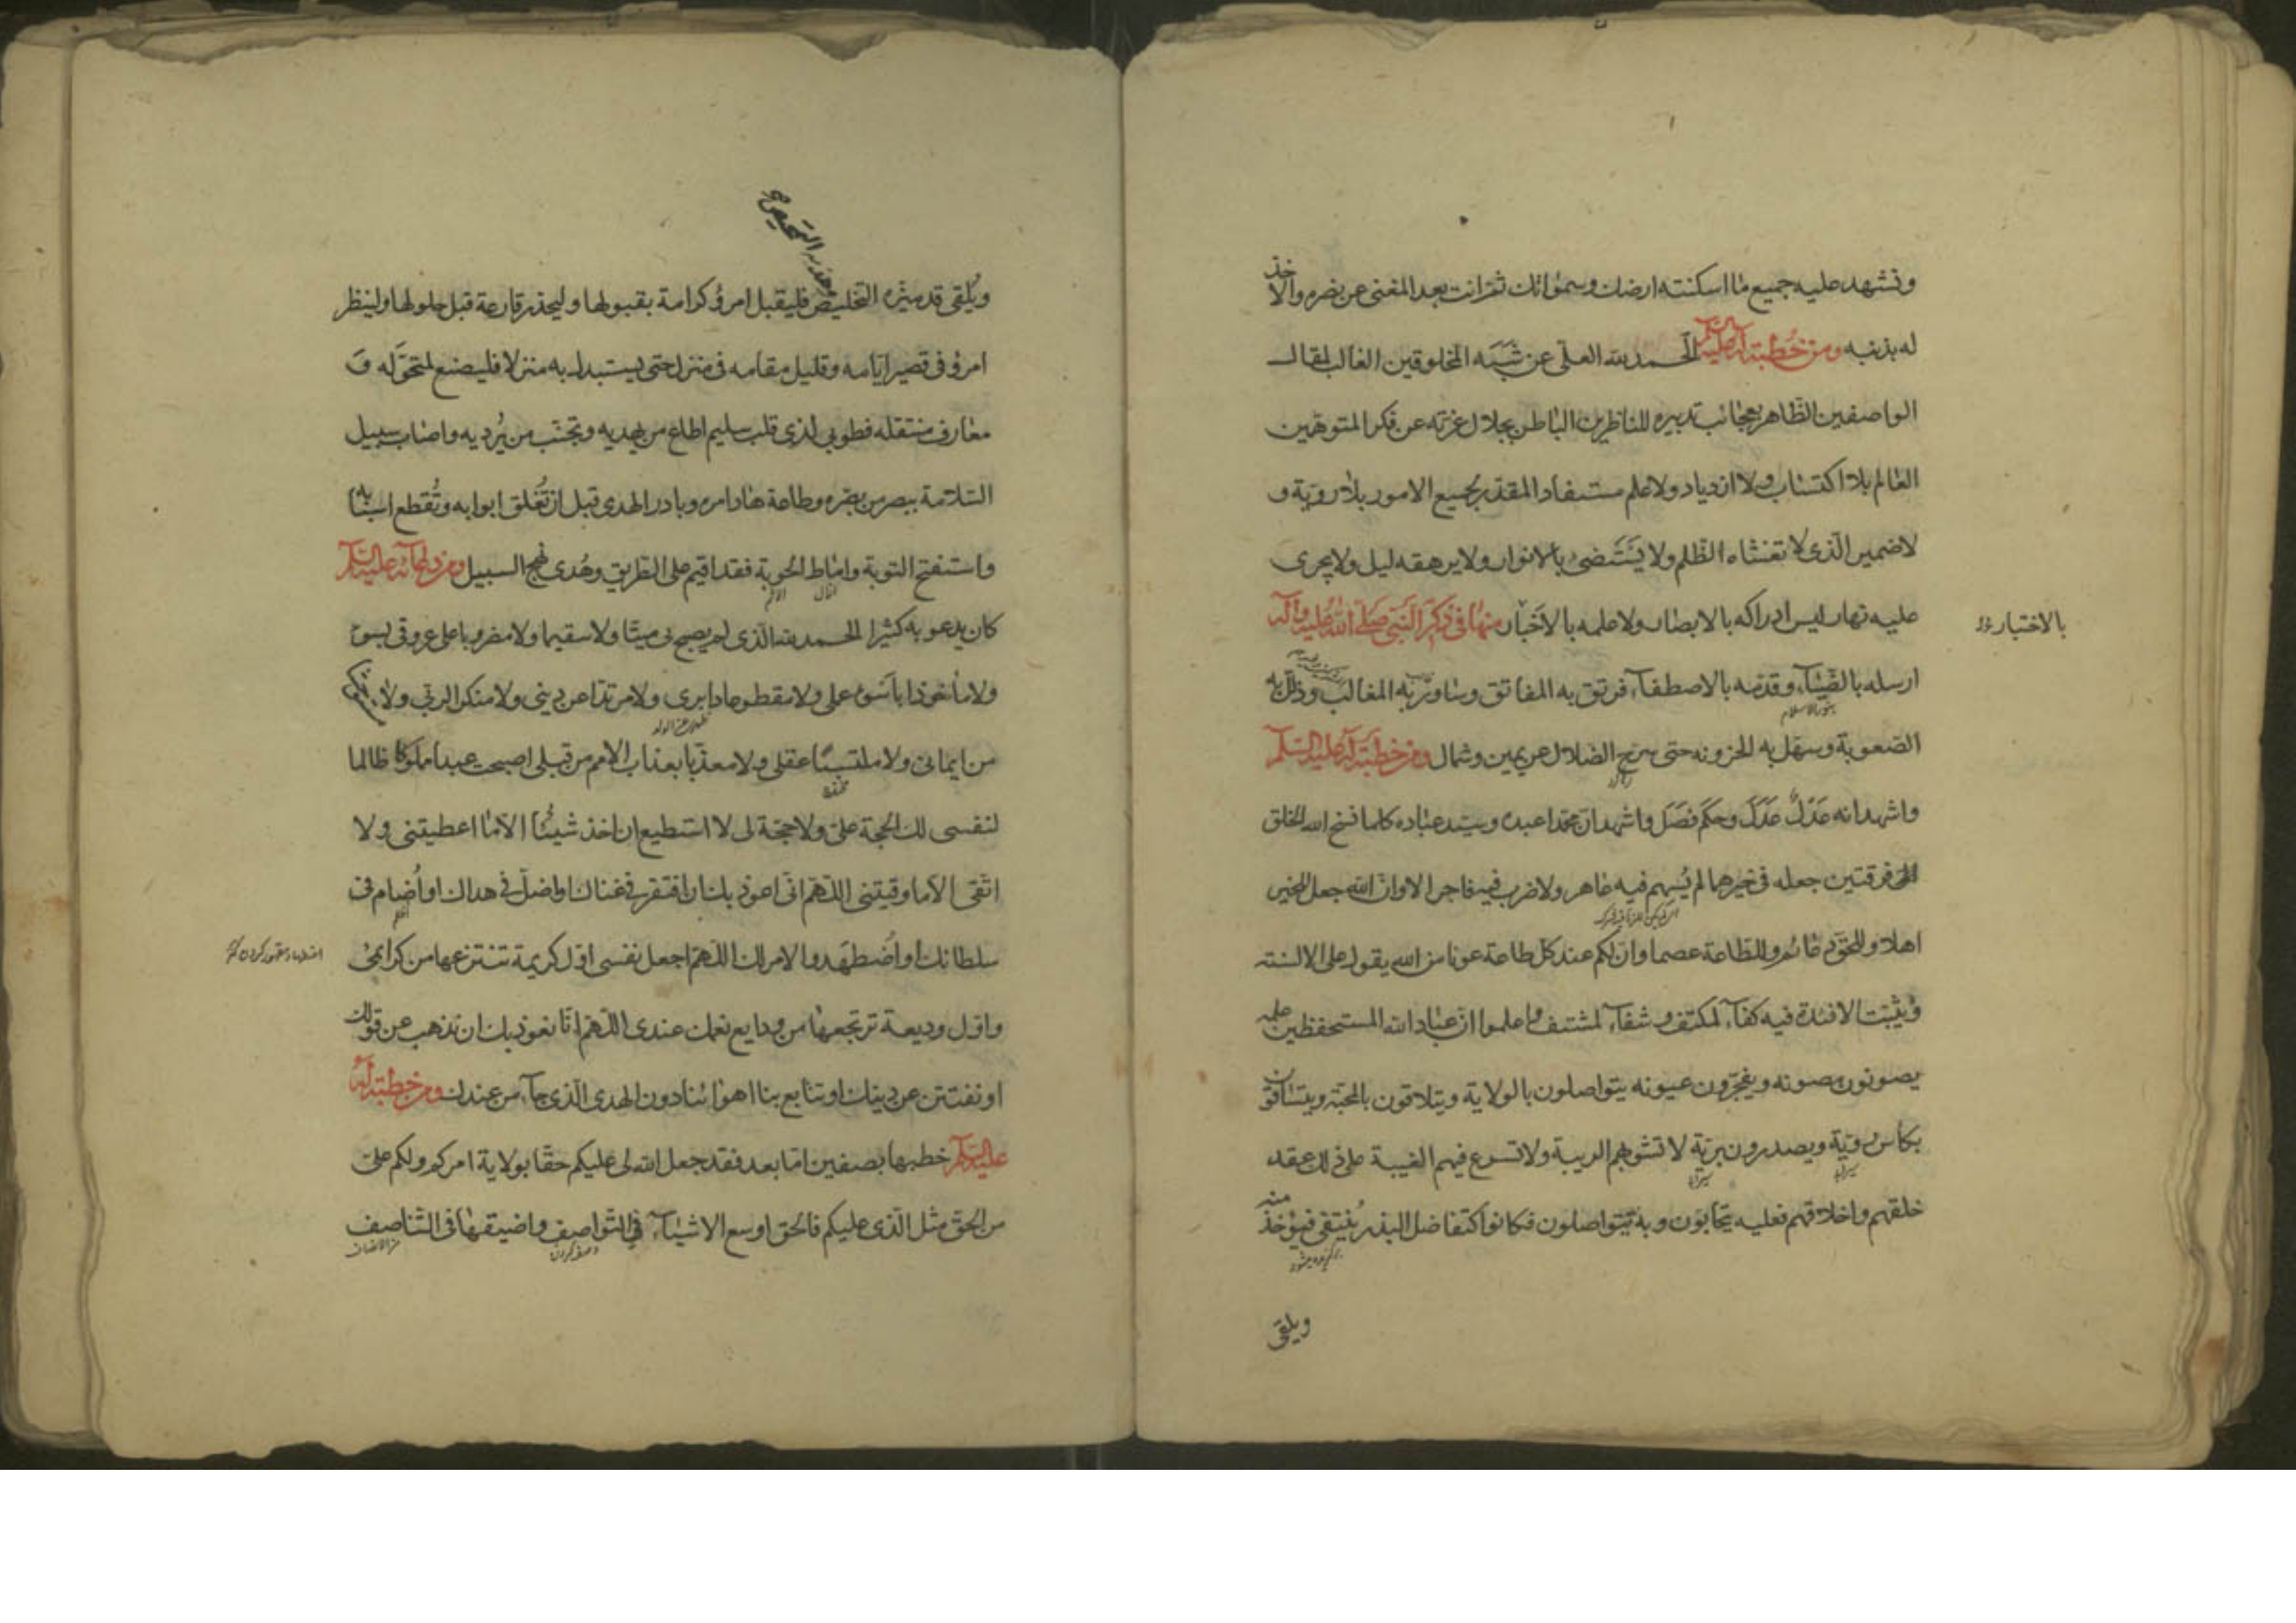 ونشهد عليه جميع ما اسكنته ارضك وسمواتك ثم انت بعد المغنى عن نصره والاخذ
له بذنبه ومن خطبة له عليه السلام الحمد لله العلى عن شبه المخلوقين الغالب لمقال
الواصفين الظاهر بعجائب تدبيره للناظرين الباطن بجلال عزته عن فكر المتوهمين
العالم بلا اكتساب ولا ازدياد ولا علم مستفاد المقدر لجميع الامور بلا روية و
لا ضمير الذى لا تغشاه الظلم ولا يستضىء بالانوار ولا يرهقه ليل ولا يجرى
عليه نهار ليس ادراكه بالابصار ولا علمه بالاخبار منها فى ذكر النبى صلى الله عليه واله
بالاختيار
ارسله بالضياء وقدمه بالاصطفاء فرتق به المفاتق وساور به المغالب وذلل به
الصعوبة وسهل به الحزونة حتى سرح الضلال عن يمين وشمال ومن خطبة له عليه السلم
واشهد انه عدل عدل وحكم فصل واشهد ان محمدا عبده وسيد عباده كلما نسخ الله الخلق
فرقتين جعله فى خيرهما لم يسهم فيه عاهر ولا ضرب فيه فاجر الا وان الله جعل للخير
اهلا وللحق دعائم وللطاعة عصما وان لكم عند كل طاعة عونا من الله يقول على الالسنة
ويثبت الافئدة فيه كفاء لمكتف وشفاء لمشتف واعلموا ان عباد الله المستحفظين علمه
يصونون مصونه ويفجرون عيونه يتواصلون بالولاية ويتلاقون بالمحبة ويتساقون
بكاس روية ويصدرون برية لا تشوبهم الريبة ولا تسرع فيهم الغيبة على ذلك عقد
خلقهم واخلاقهم فعليه يتحابون وبه يتواصلون فكانوا كتفاضل البذر ينتقى فيؤخذ منه
ويلقى
ويلقى قد ميزه التخليص فليقبل امرؤ كرامة بقبولها وليحذر قارعة قبل حلولها ولينظر
امرؤ فى قصير ايامه وقليل مقامه فى منزل حتى يستبدل به منزلا فليصنع لمتحوله و
معارف منتقله فطوبى لذى قلب سليم اطاع من يهديه وتجنب من يرديه واصاب سبيل
السلامة ببصر من بصره وطاعة هاد امره وبادر الهدى قبل ان تغلق ابوابه وتقطع اسبابه
واستفتح التوبة واماط الحوبة فقد اقيم على الطريق وهدى نهج السبيل ومن دعائه عليه السلم
كان يدعو به كثيرا الحمد لله الذى لم يصبح بى ميتا ولا سقيما ولا مضروبا على عروقى بسوء
ولا ماخوذا باسوء عملى ولا مقطوعا دابرى ولا مرتدا عن دينى ولا منكرا لربى ولا
من ايمانى ولا ملتبسا عقلى ولا معذبا بعذاب الامم من قبلى اصبحت عبدا مملوكا ظالما
لنفسى لك الحجة على ولا حجة لى لا استطيع ان اخذ شيئا الا ما اعطيتنى ولا
اتقى الا ما وقيتنى اللهم انى اعوذ بك ان افتقر فى غناك او اضل فى هداك او اضام فى
سلطانك او اضطهد والامر لك اللهم اجعل نفسى اول كريمة تنتزعها من كرائمى
واول وديعة ترتجعها من ودايع نعمك عندى اللهم انا نعوذ بك ان نذهب عن قولك
او نفتتن عن دينك او تتابع بنا اهوائنا دون الهدى الذى جاء من عندك ومن خطبة له
عليه السلم خطبها بصفين اما بعد فقد جعل الله لى عليكم حقا بولاية امركم ولكم على
من الحق مثل الذى عليكم فالحق اوسع الاشياء فى التواصف واضيقها فى التناصف